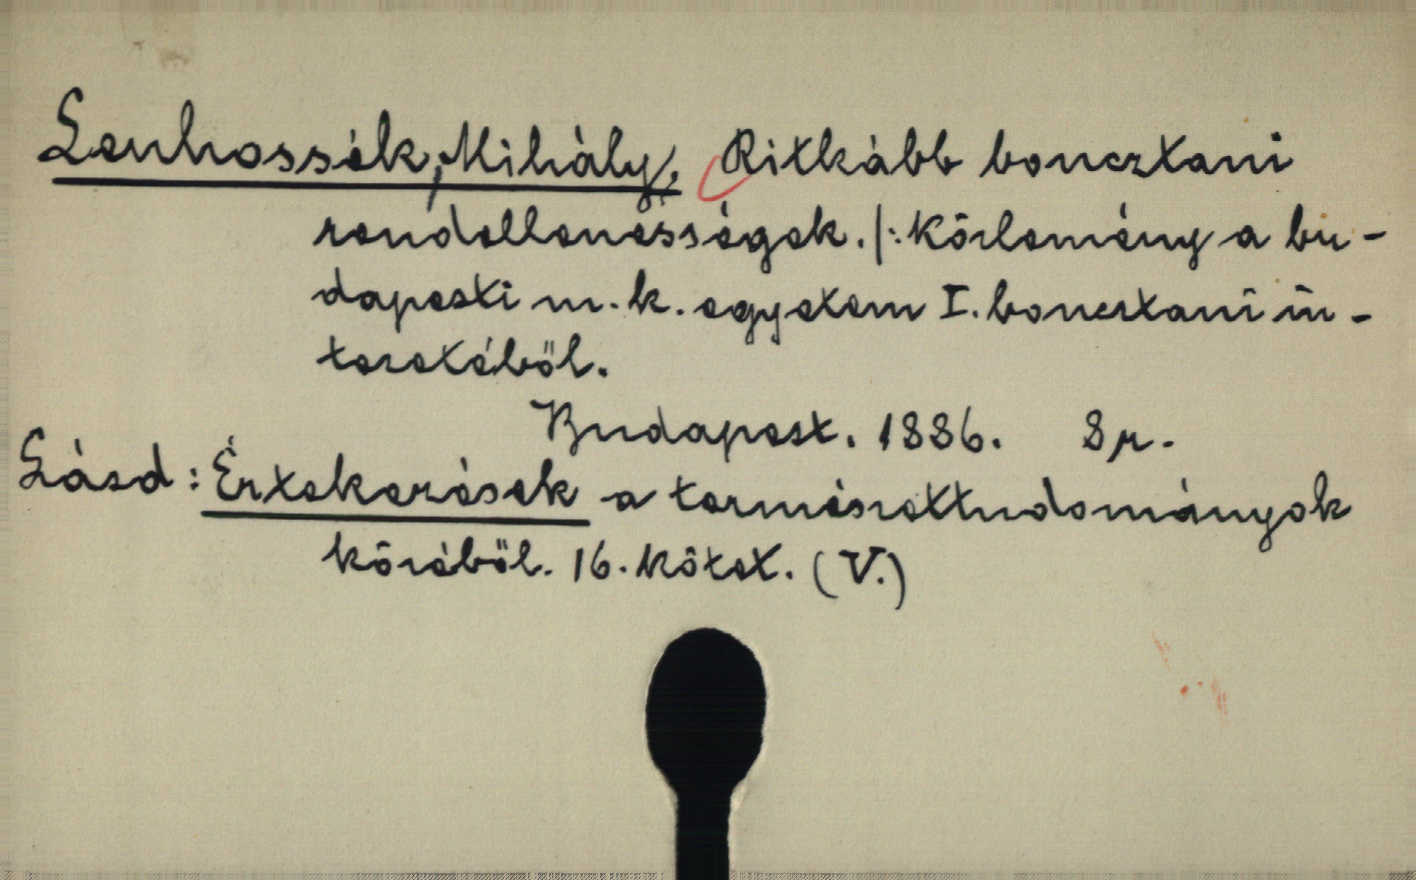 Lenhossék, Mihály, Ritkább boncztani
rendellenességek. /: Közlemény a bu-
dapesti m. k. egyetem I. boncztani in-
tézetéből.
Budapest. 1886. 8r.
Lásd: Értekezések a természettudományok
köréből. 16. kötet. (V.)